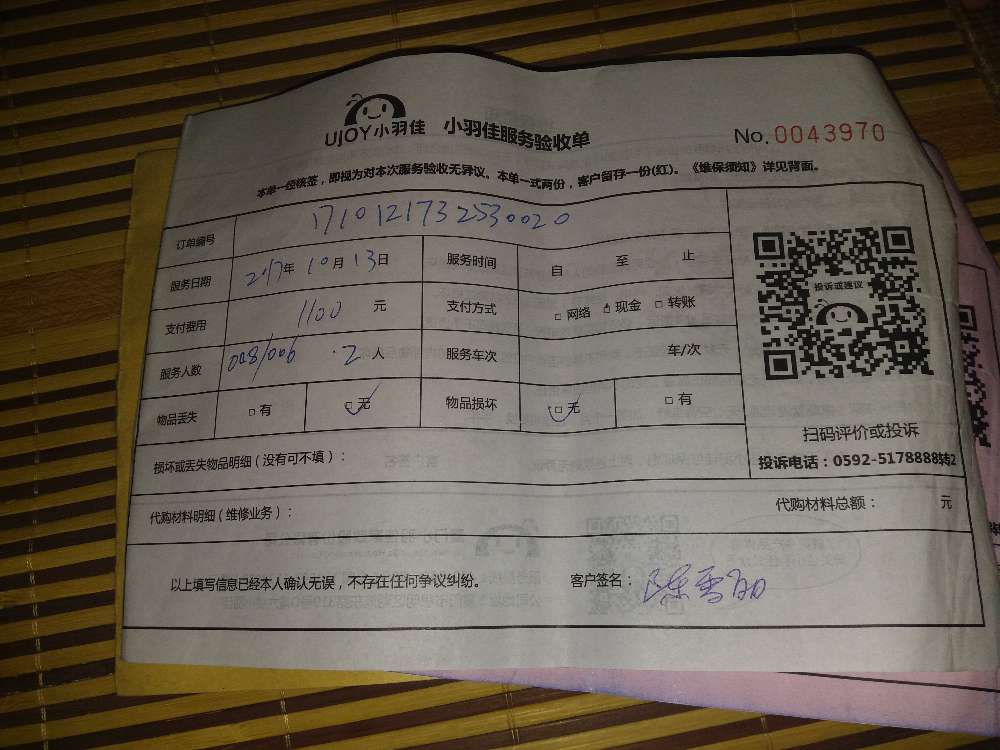 UJOY小羽佳 小羽佳服务验收单 No.0043970
本单一经核签，即视方对本次服务验收无异议。本单一式两份，客户留存一份(红)。《维保须知》详见背面。
订单编号 1710121732530020
服务日期 2017年10月13日 服务时间 自 至 止
支付费用 1100 元 支付方式 □网络 □现金 □转账
服务人数 008/006 2人 服务车次 车/次
物品丢失 □有 □无 物品损坏 □无 □有
投诉或建议
扫码评价或投诉
投诉电话：0592-5178888转2
损坏或丢失物品明细（没有可不填）：
代购材料明细（维修业务）： 代购材料总额： 元
以上填写信息已经本人确认无误，不存在任何争议纠纷。 客户签名：陈雪